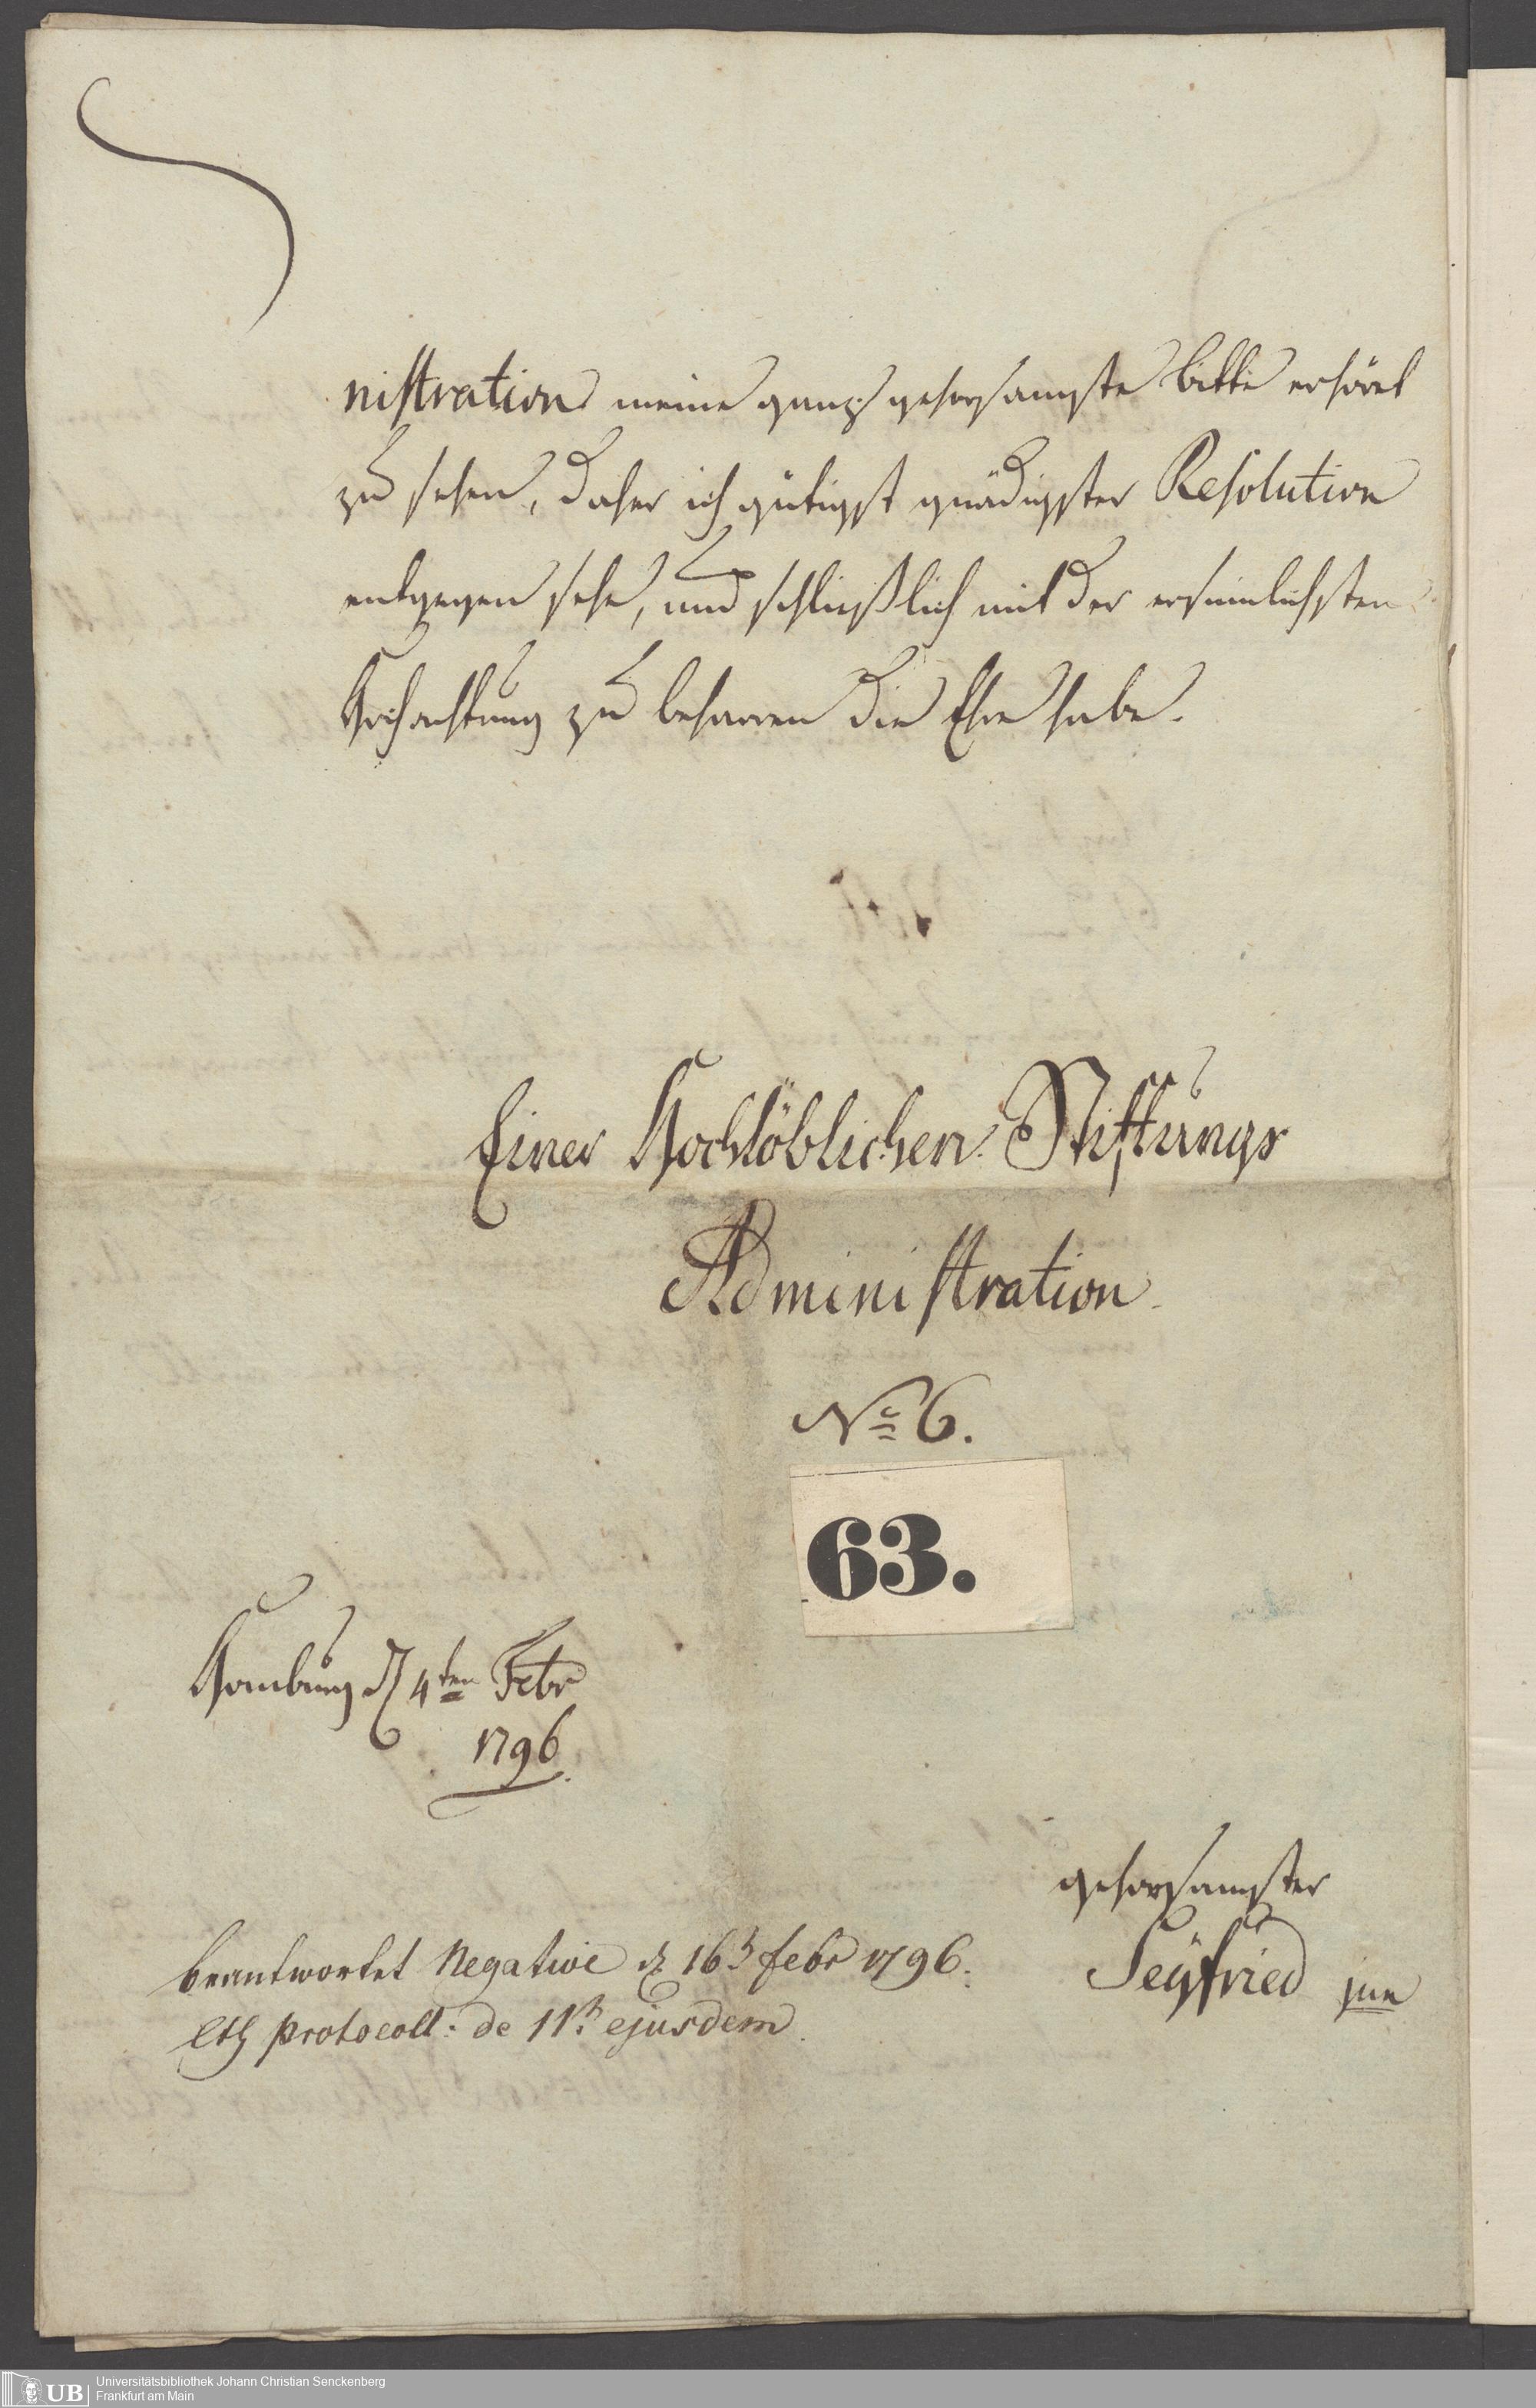 nistration meine ganz gehorsamste bitte erhöret
zu sehen, daher ich gütigst gnädigster Resolution
entgegen sehe, und schließlich mit der ersinnlichsten
Hochachtung zu beharren die Ehre habe.
Einer Hochlöblichen Stiftungs
Administration
No 6.
63.
Homburg d 4ten Febr
1796.
gehorsamster
Seÿfried jun
beantwortet Negative d 16t febr 1796.
protocoll: de 11t ejusdem
UB
Universitätsbibliothek Johann Christian Senckenberg
Frankfurt am Main